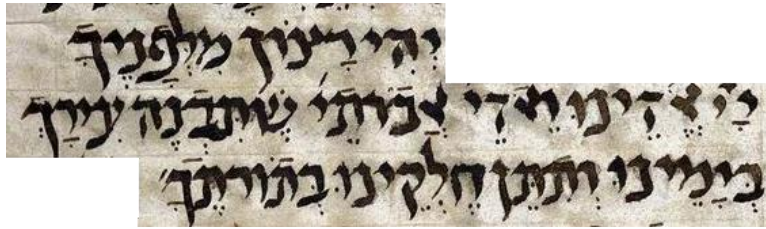 יְהִי רָצוֹן מִלְּפָנֶיךָ
יְיָ אֱלֹהֵינוּ וֵאלֹהֵי אֲבוֹתֵי׳ שֶׁתִּבְנֶה עִירָךְ
בְּיָמֵינוּ וְתִתֵּן חֶלְקֵינוּ בְּתוֹרָתֶךָ׳